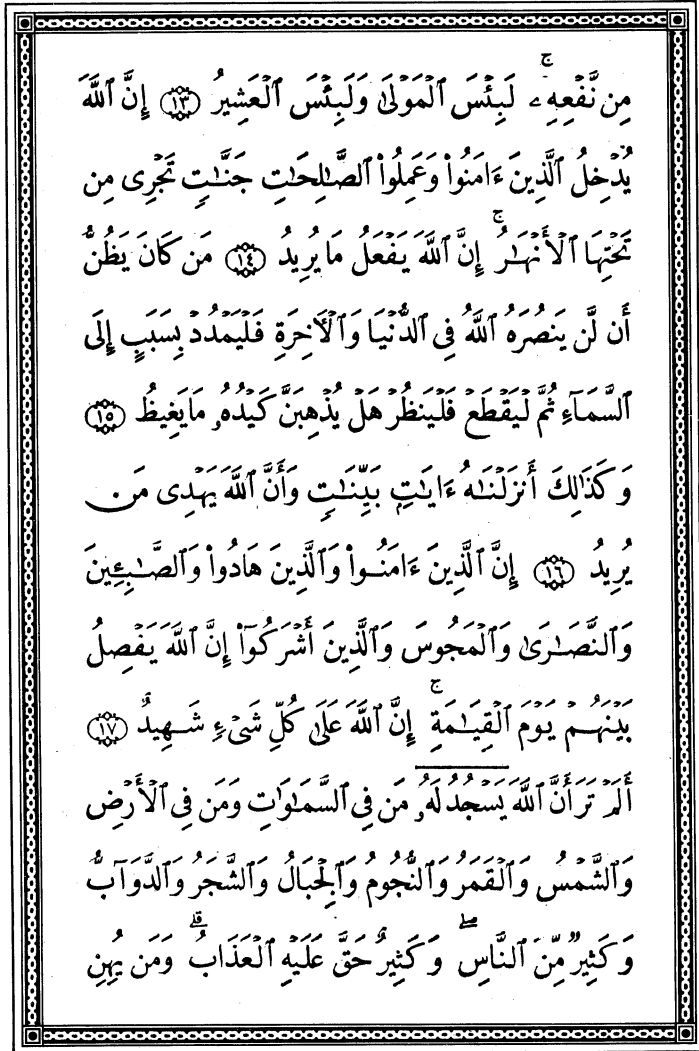 مِن نَّفْعِهِۦۚ لَبِئْسَ ٱلْمَوْلَىٰ وَلَبِئْسَ ٱلْعَشِيرُ ١٣ إِنَّ ٱللَّهَ
يُدْخِلُ ٱلَّذِينَ ءَامَنُوا۟ وَعَمِلُوا۟ ٱلصَّٰلِحَٰتِ جَنَّٰتٍ تَجْرِى مِن
تَحْتِهَا ٱلْأَنْهَٰرُۚ إِنَّ ٱللَّهَ يَفْعَلُ مَا يُرِيدُ ١٤ مَن كَانَ يَظُنُّ
أَن لَّن يَنصُرَهُ ٱللَّهُ فِى ٱلدُّنْيَا وَٱلْءَاخِرَةِ فَلْيَمْدُدْ بِسَبَبٍ إِلَى
ٱلسَّمَآءِ ثُمَّ لْيَقْطَعْ فَلْيَنظُرْ هَلْ يُذْهِبَنَّ كَيْدُهُۥ مَا يَغِيظُ ١٥
وَكَذَٰلِكَ أَنزَلْنَٰهُ ءَايَٰتٍۭ بَيِّنَٰتٍ وَأَنَّ ٱللَّهَ يَهْدِى مَن
يُرِيدُ ١٦ إِنَّ ٱلَّذِينَ ءَامَنُوا۟ وَٱلَّذِينَ هَادُوا۟ وَٱلصَّٰبِـِٔينَ
وَٱلنَّصَٰرَىٰ وَٱلْمَجُوسَ وَٱلَّذِينَ أَشْرَكُوٓا۟ إِنَّ ٱللَّهَ يَفْصِلُ
بَيْنَهُمْ يَوْمَ ٱلْقِيَٰمَةِۚ إِنَّ ٱللَّهَ عَلَىٰ كُلِّ شَىْءٍ شَهِيدٌ ١٧
أَلَمْ تَرَ أَنَّ ٱللَّهَ يَسْجُدُ لَهُۥ مَن فِى ٱلسَّمَٰوَٰتِ وَمَن فِى ٱلْأَرْضِ
وَٱلشَّمْسُ وَٱلْقَمَرُ وَٱلنُّجُومُ وَٱلْجِبَالُ وَٱلشَّجَرُ وَٱلدَّوَآبُّ
وَكَثِيرٌ مِّنَ ٱلنَّاسِۖ وَكَثِيرٌ حَقَّ عَلَيْهِ ٱلْعَذَابُۗ وَمَن يُهِنِ